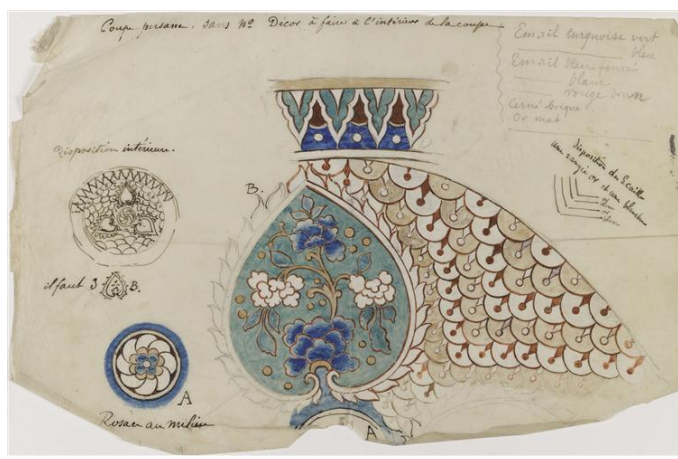 Coupe persane. sans Nº Décor à faire à l'intérieur de la coupe
Email turquoise vert
bleu
Email bleu foncé
blanc
rouge brun
Cerné brique
Or mat
Disposition intérieure.
Disposition des Ecailles
une rangée or et une blanche
B.
il faut 3 B.
A
Rosace au milieu
A